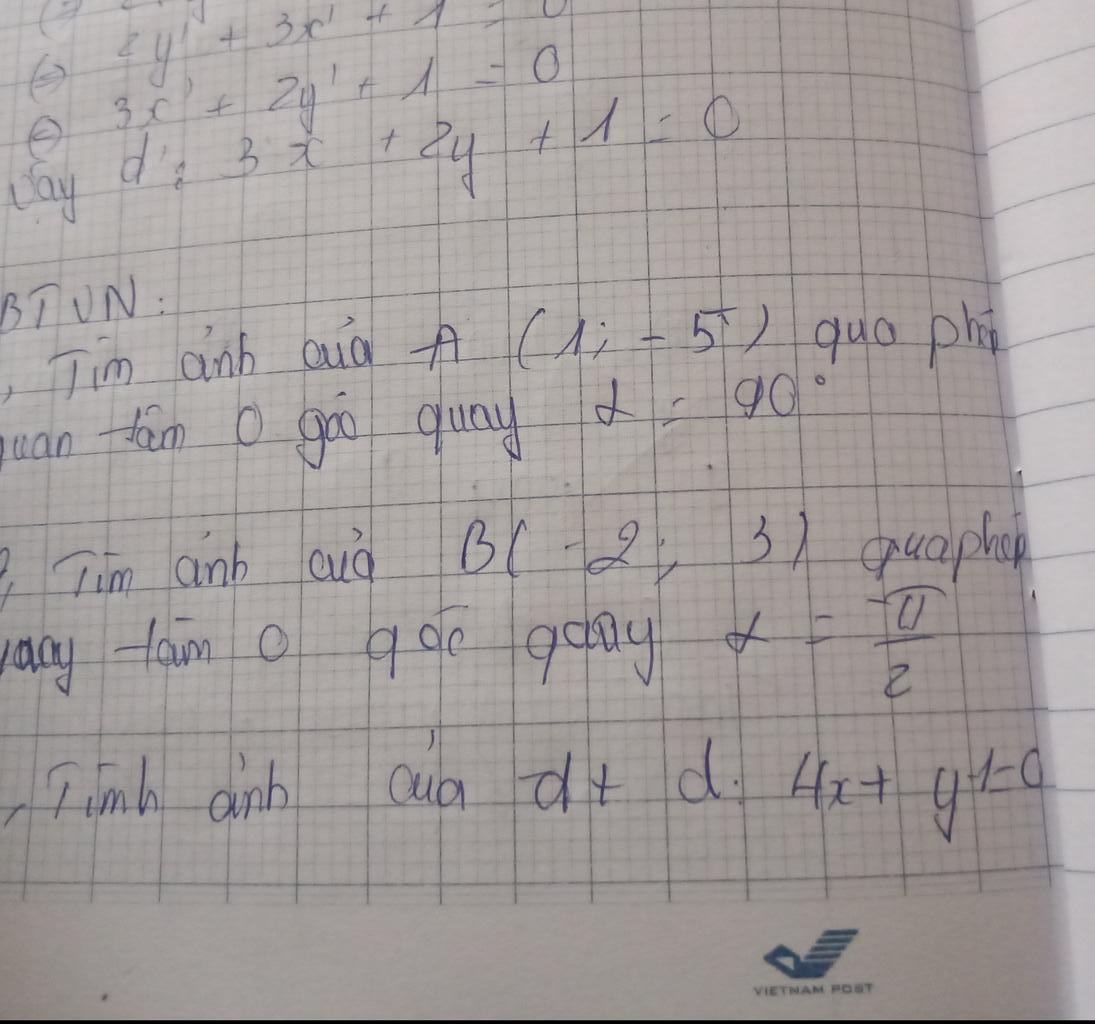 2y' + 3x' + 1 = 0
⇔ 3x' + 2y' + 1 = 0
Vậy d': 3x + 2y + 1 = 0
BTVN:
, Tìm ảnh của A (1; -5) qua phép
quan tâm O góc quay α = 90°
2, Tìm ảnh của B( -2; 3) qua phép
quay tâm O góc quay α = -π/2
, Tìmh ảnh của đt d: 4x + y
VIETNAM POST